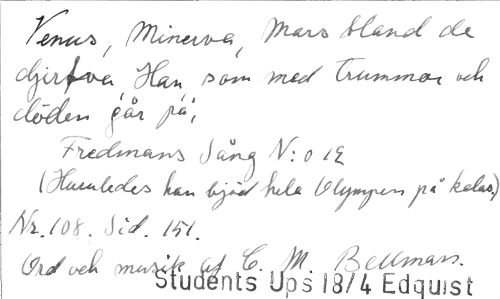 Venus, Minerva, Mars bland de
djerfva, Han, som med trummor och
döden går på,
Fredmans Sång N:o 12
(Huruledes han bjöd hela Olympen på kalas.)
Nr. 108. Sid. 151.
Ord och musik af C. M. Bellman.
Students Ups 18/4 Edquist